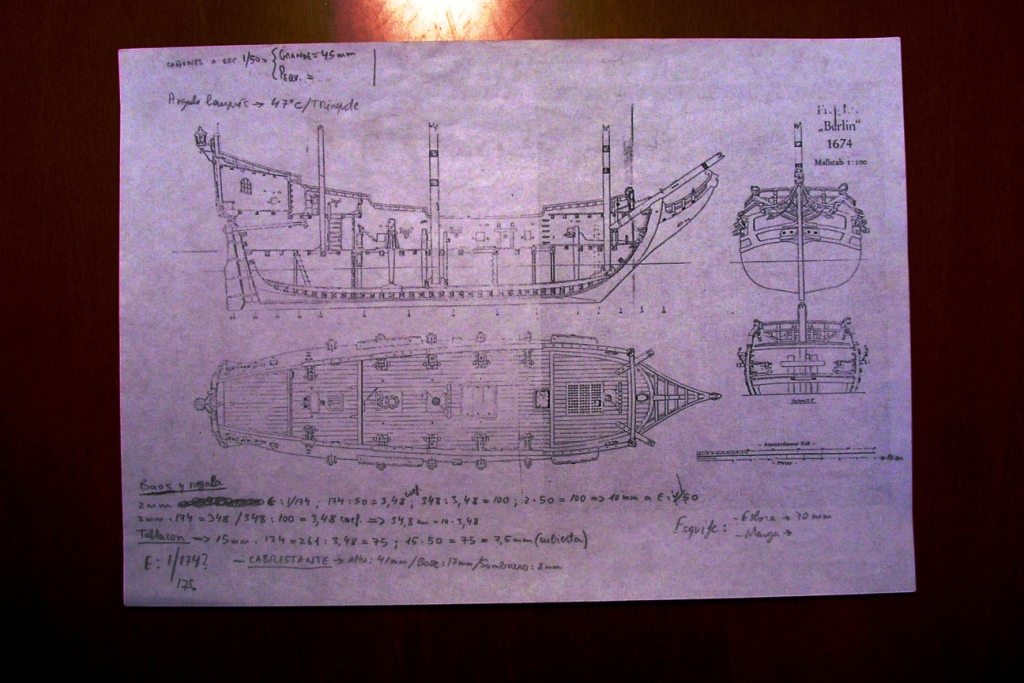 CAÑONES A ESC 1/50 → { GRANDE = 45 mm
PEQU. =
Angulo bauprés → 47° C/Trinquete
„Berlin"
1674
Maßstab 1:100
Schnitt F
– Amsterdamer Fuß –
– Meter –
Baos y regala
2mm E: 1/174, 174:50 = 3,48 coef. ; 348:3,48 = 100 ; 2·50 = 100 => 10 mm a E: 1/50
2mm · 174 = 348 / 348 : 100 = 3,48 coef. => 34,8 = 10 · 3,48
Tablazon => 15 mm · 174 = 261 : 3,48 = 75 ; 15·50 = 75 = 7,5 mm (cubierta)
E: 1/174?
175
– CABRESTANTE → Alto: 41mm / Base: 17mm / Sombrero: 8mm
Esquife: - Eslora → 70 mm
- Manga →